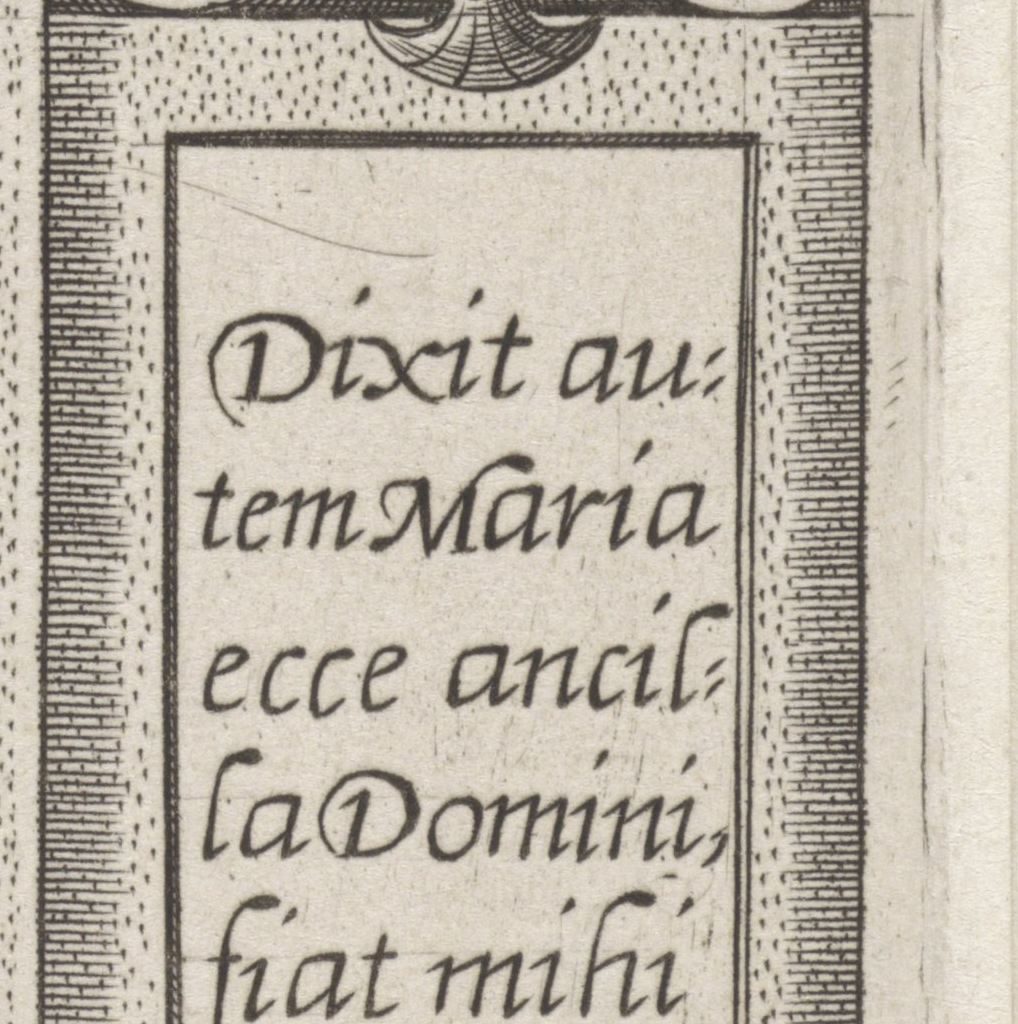 Dixit au-
tem Maria
ecce ancil-
la Domini,
fiat mihi